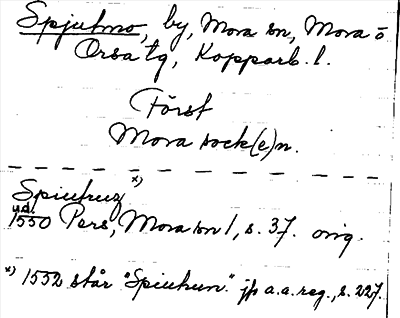 Spjutmo, by, Mora sn, Mora o.
Orsa tg, Kopparb. l.
Först
Mora sock(e)n.
Spiutruz x)
u.å.
1550 Pers, Mora sn 1, s. 37. orig.
x) 1552 står "Spiukun." jfr a.a. reg., s. 227.